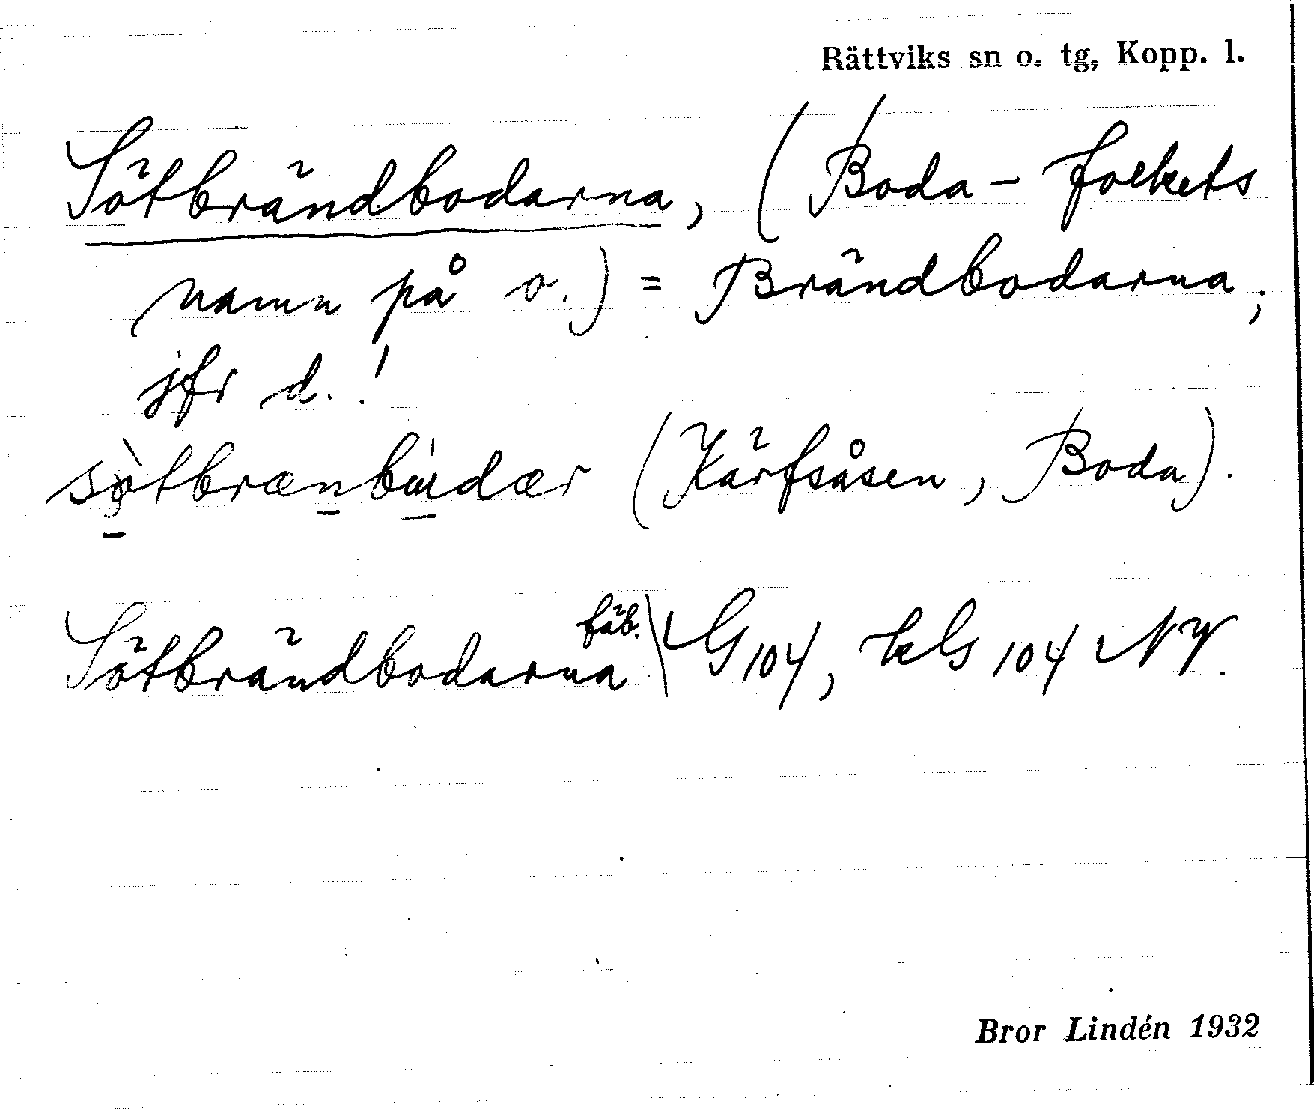 Rättviks sn o. tg, Kopp. l.
Sötbrändbodarna, (Boda-folkets
namn på o.) = Brändbodarna;
jfr d.!
sòtbrænbùdær (Kärfsåsen, Boda).
Sötbrändbodarna fäb. G 104, kls 104 NV.
Bror Lindén 1932